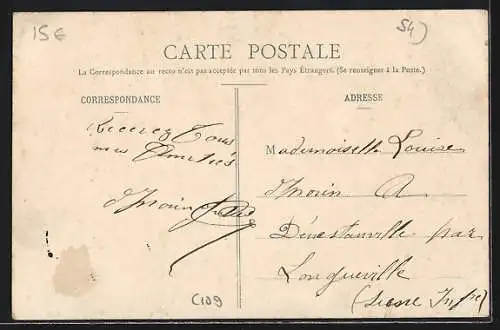 15€
54)
CARTE POSTALE
La Correspondance au recto n'est pas acceptée par tous les Pays Étrangers. (Se renseigner à la Poste.)
CORRESPONDANCE
ADRESSE
Recevez Tous
mes Amitiés
Mademoiselle Louise
A.
Dénestanville par
Longueville
(Seine Infre)
C109